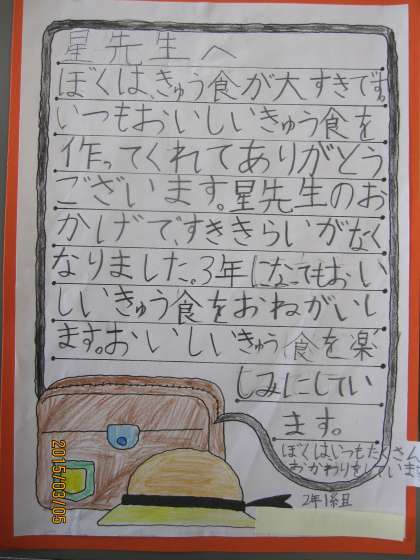 星先生へ
ぼくは、きゅう食が大すきです。
いつもおいしいきゅう食を
作ってくれてありがとう
ございます。星先生のお
かげで、すききらいがなく
なりました。3年になってもおい
しいきゅう食をおねがいし
ます。おいしいきゅう食を楽
しみにしてい
ます。
ぼくは、いつもたくさん
おかわりをしています
2年1組
2015/03/05